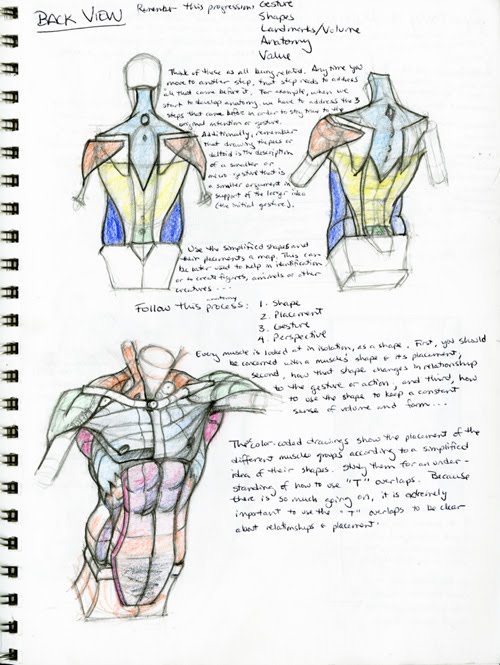 BACK VIEW
Remember this progression: Gesture
Shapes
Landmarks/Volume
Anatomy
Value
Think of these as all being related. Any time you
move to another step, that step needs to address
all that came before it. For example, when we
start to develop anatomy, we have to address the 3
steps that came before in order to stay true to the
original intention or gesture.
Additionally, remember
that drawing the
deltoid is the description
of a smaller or
micro gesture that is
a smaller argument in
support of the larger idea
(the initial gesture).
Use the simplified shapes and
their placement as a map. This can
be later used to help in identification
or to create figures, animals or other
creatures...
Follow this anatomy process: 1. Shape
2. Placement
3. Gesture
4. Perspective
Every muscle is looked at in isolation, as a shape. First, you should
be concerned with a muscles' shape & its placement,
second, how that shape changes in relationship
to the gesture or action, and third, how
to use the shape to keep a constant
sense of volume and form...
The color-coded drawings show the placement of the
different muscle groups according to a simplified
idea of their shapes. Study them for an under-
standing of how to use "T" overlaps. Because
there is so much going on, it is extremely
important to use the "T" overlaps to be clear
about relationships & placement.